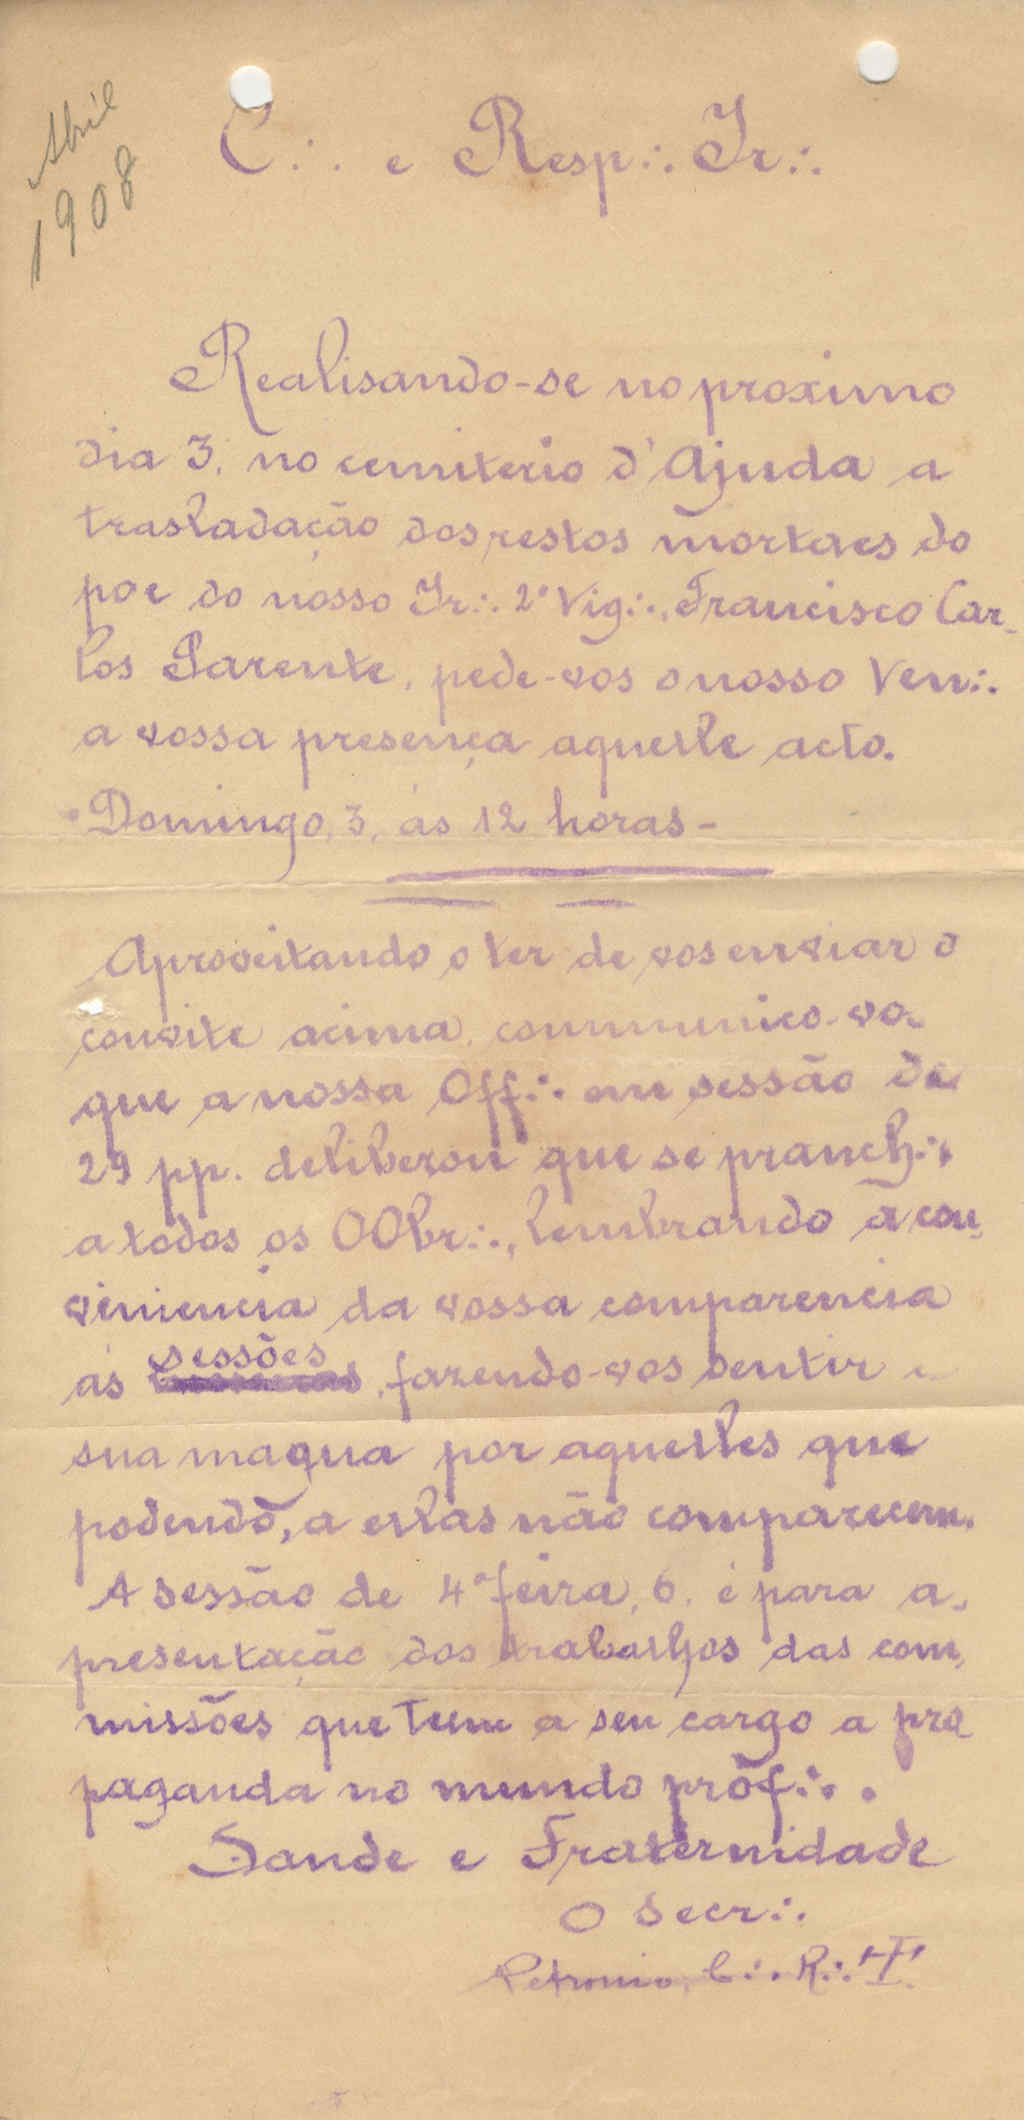 Abril
1908
C∴ e Resp∴ Ir∴
Realisando-se no proximo
dia 3, no cemiterio d'Ajuda a
trasladação dos restos mortaes do
pae do nosso Ir∴ 2º Vig∴, Francisco Car-
los Parente, pede-vos o nosso Ven∴
a vossa presença aquelle acto.
Domingo, 3, ás 12 horas -
Aproveitando o ter de vos enviar o
convite acima, communico-vos
que a nossa Off∴ em sessão de
29 pp. deliberou que se pranch∴
a todos os OObr∴, lembrando a con-
viniencia da vossa comparencia
ás sessões, fazendo-vos sentir a
sua magua por aquelles que
podendo, a ellas não comparecem.
A sessão de 4ª feira, 6, é para a-
presentação dos trabalhos das com-
missões que teem a seu cargo a pro
paganda no mundo prof∴.
Saude e Fraternidade
O Secr∴
Petronio, C∴ R∴ ✝